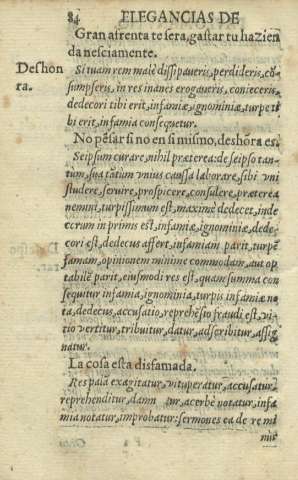 84 ELEGANCIAS DE
Gran afrenta te sera, gastar tu hazien
da nesciamente.
Deshon
ra.
Si tuam rem malè dissipaueris, perdideris, cõ-
sumpseris, in res inanes erogaueris, conieceris,
dedecori tibi erit, infamiæ, ignominiæ, turpe ti
bi erit, infamia consequetur.
No pẽsar si no en si mismo, deshõra es.
Seipsum curare, nihil præterea: de seipso tan-
tum, sua tãtùm vnius caussa laborare, sibi vni
studere, seruire, prospicere, consulere, præterea
nemini, turpissimum est, maximè dedecet, inde
ccrum in primis est, infamiæ, ignominiæ, dede-
cori est, dedecus affert, infamiam parit, turpẽ
famam, opinionem minime commodam, aut op
tabilẽ parit, eiusmodi res est, quam summa con
sequitur infamia, ignominia, turpis infamiæ no
ta, dedecus, accusatio, reprehẽsio fraudi est, vi-
tio vertitur, tribuitur, datur, adscribitur, assig
natur.
La cosa esta disfamada.
Res palã exagitatur, vituperatur, accusatur,
reprehenditur, tur, acerbè notatur, infa
mia notatur, improbatur: sermones ea de re mi
nis